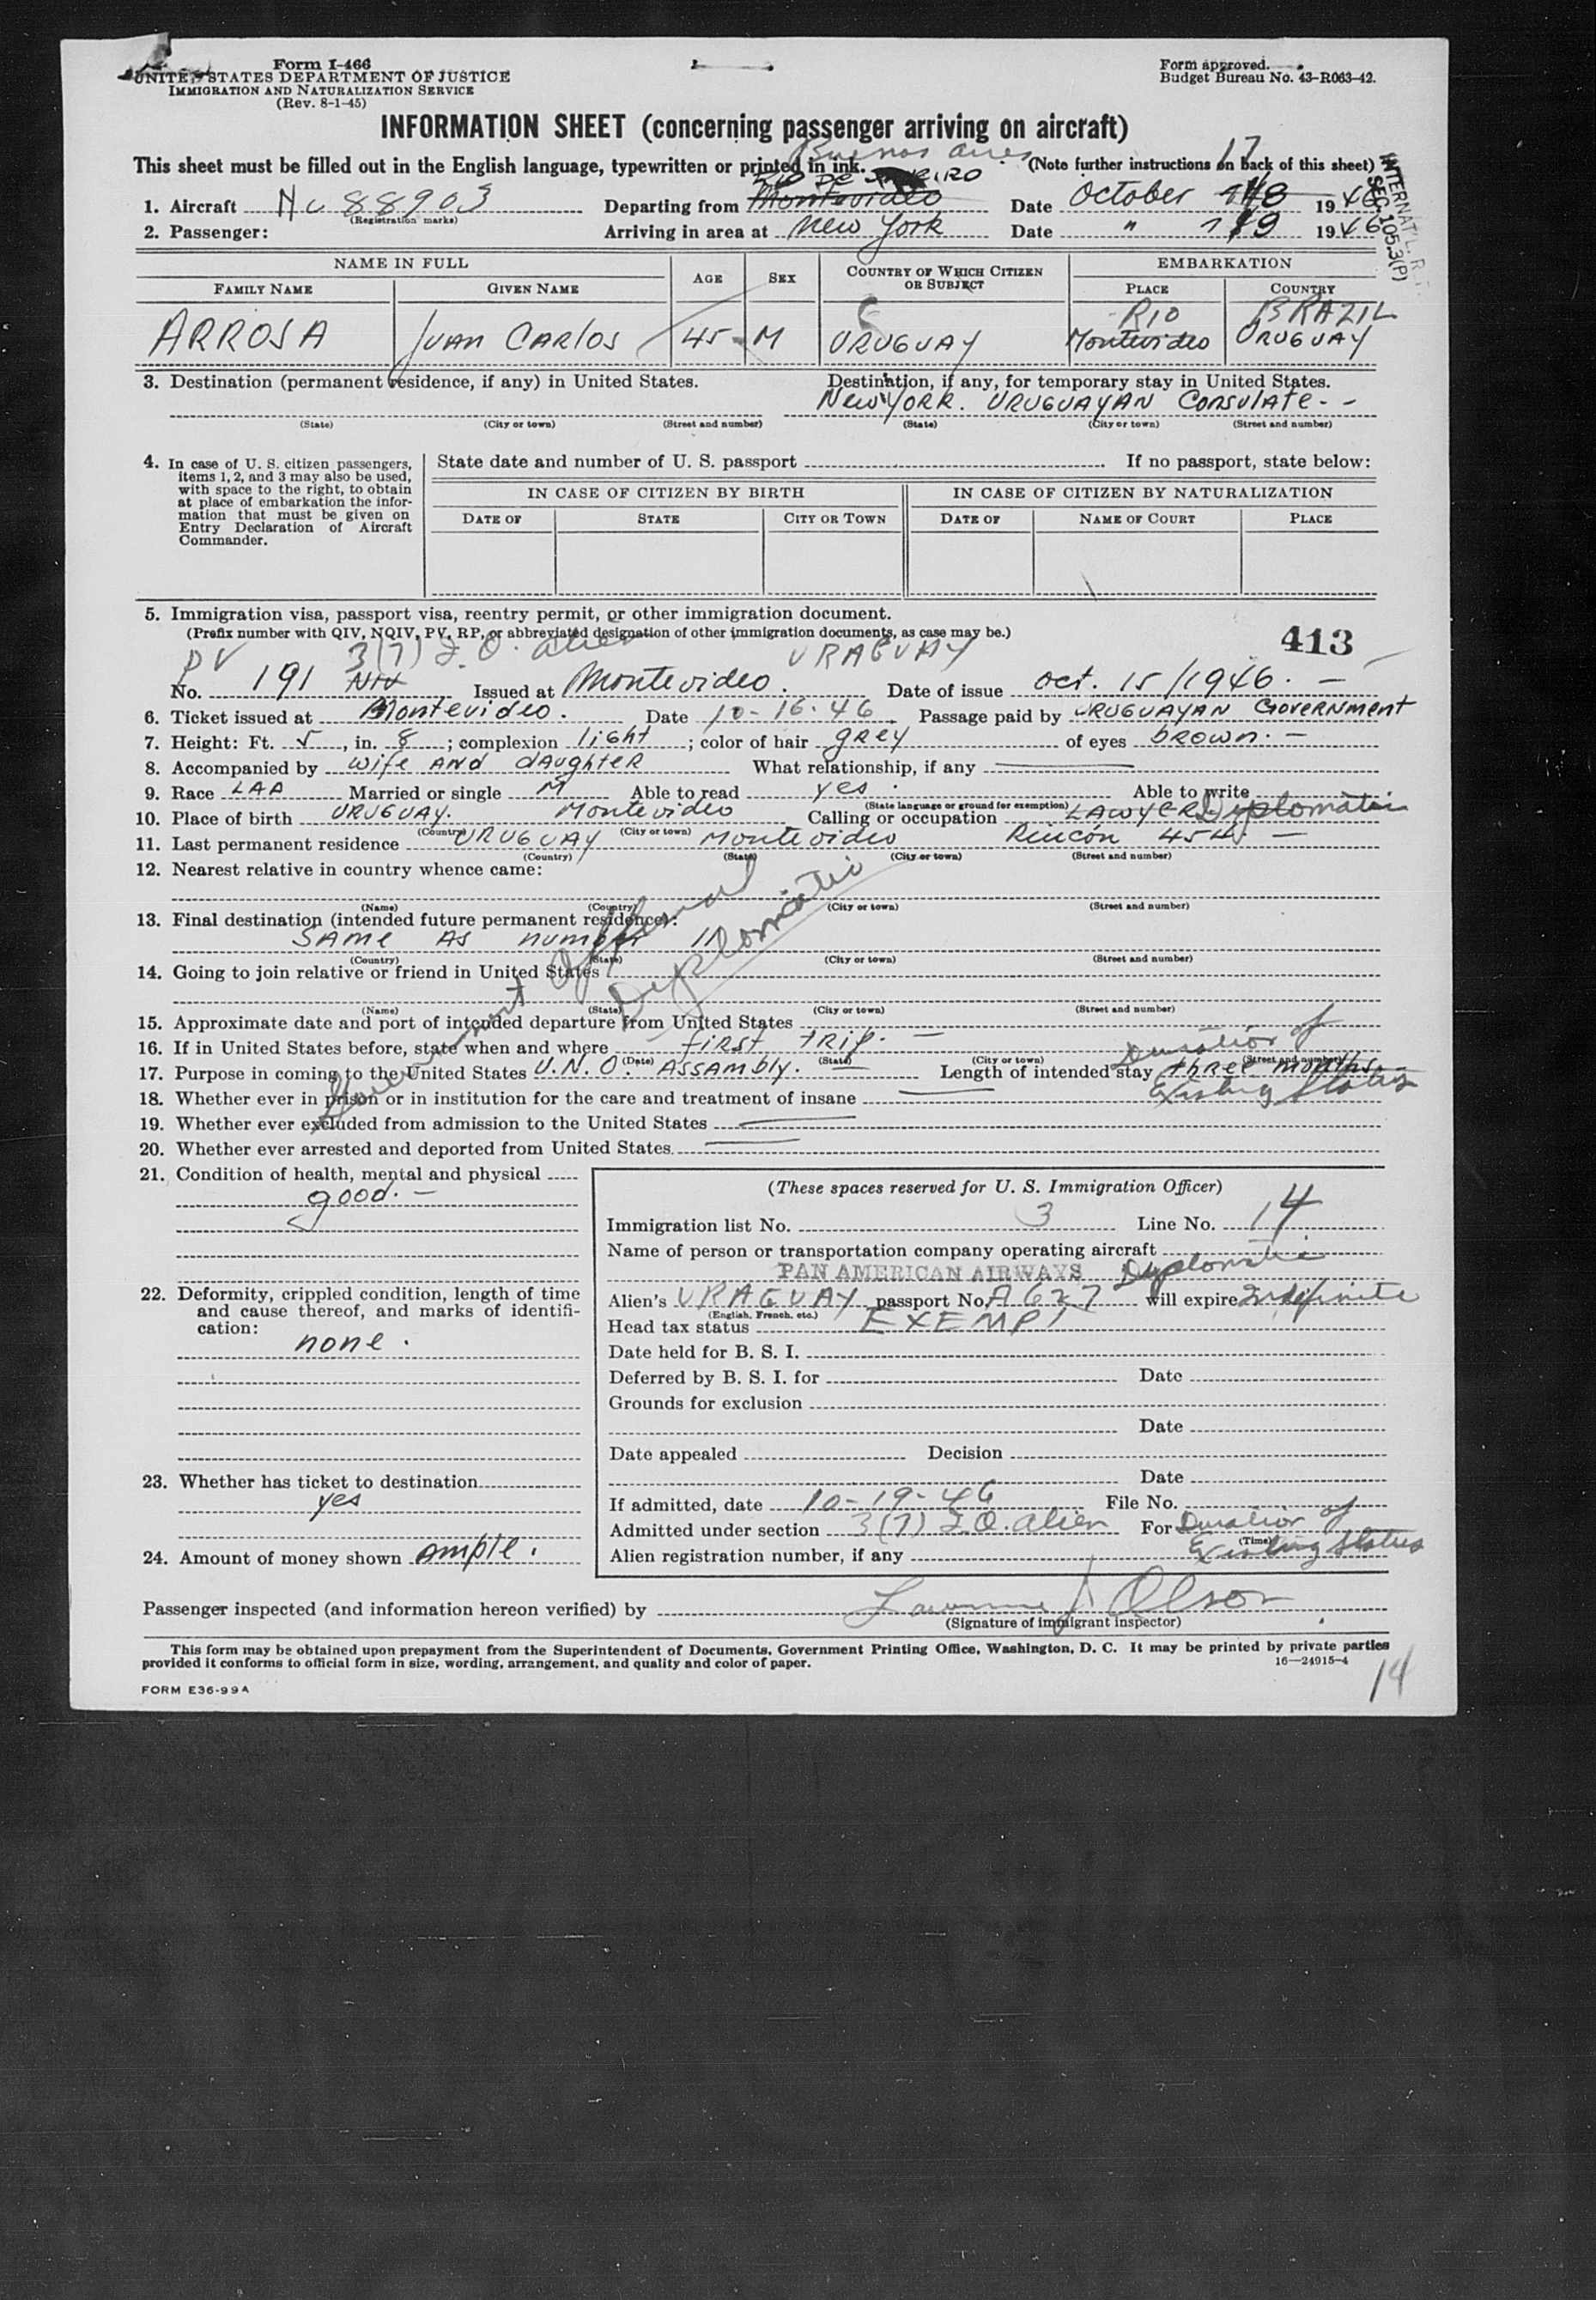 Form I-466
UNITED STATES DEPARTMENT OF JUSTICE
IMMIGRATION AND NATURALIZATION SERVICE
(Rev. 8-1-45)
Form approved.
Budget Bureau No. 43-R063-42.
INFORMATION SHEET (concerning passenger arriving on aircraft)
This sheet must be filled out in the English language, typewritten or printed in ink. (Note further instructions on back of this sheet)
Buenos Aires 17
RIO DE JANEIRO
INTERNAT'L.
SEC. 105.3(P)
1. Aircraft Nc 88903 Departing from Montevideo Date October 18 1946
(Registration marks)
2. Passenger: Arriving in area at New York Date " 19 1946
NAME IN FULL AGE SEX COUNTRY OF WHICH CITIZEN OR SUBJECT EMBARKATION
FAMILY NAME GIVEN NAME PLACE COUNTRY
RIO BRAZIL
ARROSA JUAN CARLOS 45 M URUGUAY Montevideo URUGUAY
3. Destination (permanent residence, if any) in United States. Destination, if any, for temporary stay in United States.
New YORK. URUGUAYAN Consulate. -
(State) (City or town) (Street and number) (State) (City or town) (Street and number)
4. In case of U. S. citizen passengers, items 1, 2, and 3 may also be used, with space to the right, to obtain at place of embarkation the information that must be given on Entry Declaration of Aircraft Commander.
State date and number of U. S. passport If no passport, state below:
IN CASE OF CITIZEN BY BIRTH IN CASE OF CITIZEN BY NATURALIZATION
DATE OF STATE CITY OR TOWN DATE OF NAME OF COURT PLACE
5. Immigration visa, passport visa, reentry permit, or other immigration document.
(Prefix number with QIV, NQIV, PV, RP, or abbreviated designation of other immigration documents, as case may be.)
413
PV 3(7) I.O. alien URAGUAY
No. 191 NIV Issued at Montevideo. Date of issue oct. 15/1946. -
6. Ticket issued at Montevideo. Date 10-16-46 Passage paid by URUGUAYAN GOVERNMENT
7. Height: Ft. 5, in. 8; complexion light; color of hair grey of eyes brown. -
8. Accompanied by wife AND daughter What relationship, if any
9. Race LAA Married or single M Able to read yes. Able to write
(State language or ground for exemption)
10. Place of birth URUGUAY. Montevideo Calling or occupation LAWYER Dyplomatic
(Country) (City or town)
11. Last permanent residence URUGUAY Montevideo Rincón 454 -
(Country) (State) (City or town) (Street and number)
12. Nearest relative in country whence came:
(Name) (Country) (City or town) (Street and number)
Government Official
Dyplomatic
13. Final destination (intended future permanent residence):
SAME AS number 11
(Country) (State) (City or town) (Street and number)
14. Going to join relative or friend in United States
(Name) (State) (City or town) (Street and number)
15. Approximate date and port of intended departure from United States
16. If in United States before, state when and where first trip. -
(Date) (State) (City or town) (Street and number)
Duration of
17. Purpose in coming to the United States U.N.O. ASSAMbly. Length of intended stay three months
Existing Status
18. Whether ever in prison or in institution for the care and treatment of insane
19. Whether ever excluded from admission to the United States
20. Whether ever arrested and deported from United States.
21. Condition of health, mental and physical
good. -
22. Deformity, crippled condition, length of time and cause thereof, and marks of identification:
none.
23. Whether has ticket to destination
yes
24. Amount of money shown ample.
(These spaces reserved for U. S. Immigration Officer)
Immigration list No. 3 Line No. 14
Name of person or transportation company operating aircraft
PAN AMERICAN AIRWAYS Dyplomatic
Alien's URAGUAY passport No. A627 will expire Indefinite
(English, French, etc.)
Head tax status EXEMPT
Date held for B. S. I.
Deferred by B. S. I. for Date
Grounds for exclusion
Date
Date appealed Decision
Date
If admitted, date 10-19-46 File No.
Admitted under section 3(7) I.O. alien For Duration of
(Time)
Existing Status
Alien registration number, if any
Passenger inspected (and information hereon verified) by Lawrence J Olson
(Signature of immigrant inspector)
This form may be obtained upon prepayment from the Superintendent of Documents, Government Printing Office, Washington, D. C. It may be printed by private parties
provided it conforms to official form in size, wording, arrangement, and quality and color of paper. 16—24915-4
FORM E36-99A
14